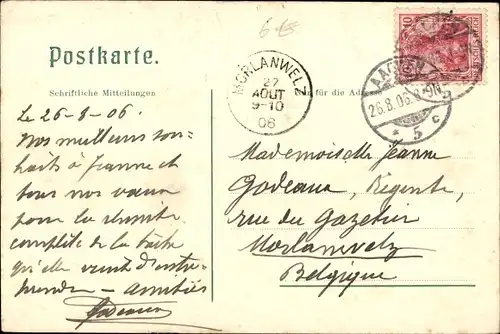 6 €
Postkarte.
MORLANWELZ
27
AOUT
9-10
06
10
AACHEN
26.8.06.8-9N.
* 5 c
Schriftliche Mitteilungen
für die Adresse
Le 26-8-06.
Nos meilleurs sou-
haits à Jeanne et
tous nos vœux
pour la réussite
complète de la tâche
qu'elle vient d'entre-
prendre — amitiés
Godeaux
Mademoiselle Jeanne
Godeaux, Régente,
rue du Gazetier
Morlanwelz
Belgique